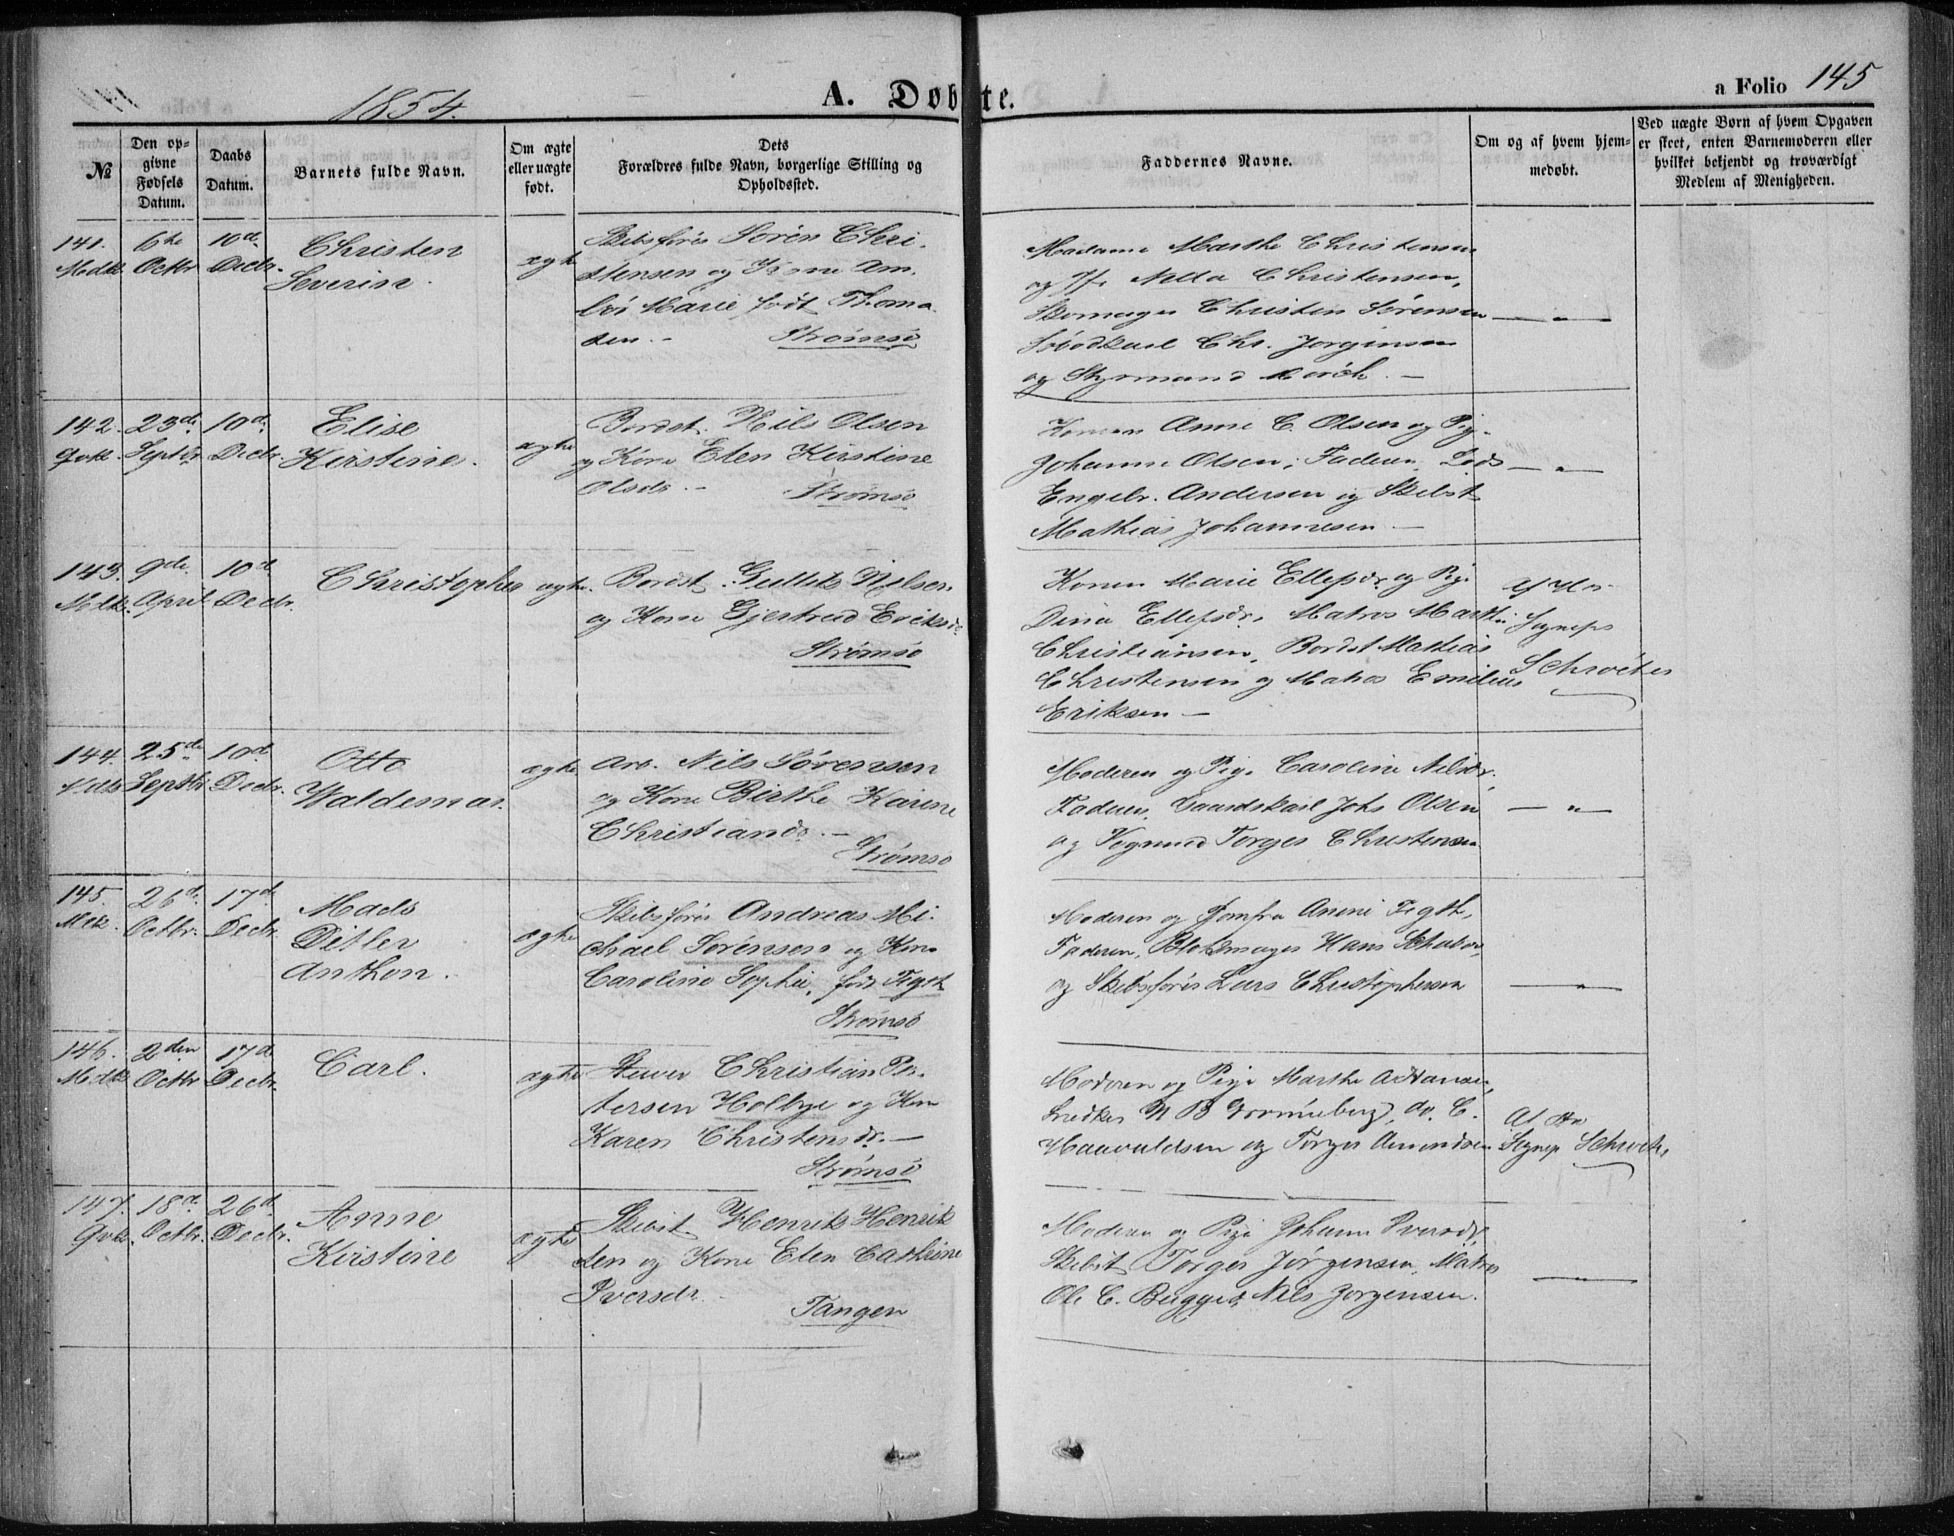 1854.
A. Døbte.
a Folio 145
№
Den opgivne Fødsels Datum.
Daabs Datum.
Barnets fulde Navn.
Om ægte eller uægte født.
Dets Forældres fulde Navn, borgerlige Stilling og Opholdssted.
Faddernes Navne.
Om og af hvem hjemmedøbt.
Ved uægte Børn af hvem Opgaven er skeet, enten Barnemoderen eller hvilket bekjendt og troværdigt Medlem af Menigheden.
141. 6te Octbr 10de Decbr.
Christen
Severin
ægte
Skibsfører Søren Chri-
stensen og Kone Am-
Marie født Thoma-
sen. - Strømsø
Madame Marthe Christensen
og Christensen,
Skomager Christen Sørensen
Chs. Jørgensen
og Styrmand
142. 23de Septbr. 10de Decbr.
Elise
Kirstine.
ægte
Bordst. Nils Olsen
og Kone Elen Kirstine
Olsdr. - Strømsø
Konen Anne C. Olsen og Pig.
Johanne Olsen, Faderen, Lods
Engebr. Andersen og Skibst
Mathias Johannesen -
143. 9de April 10de Decbr.
Christopher
ægte.
Bordst. Gullik Nilsen
og Kone Gjertrud Eriksdr.
Strømsø
Konen Marie Ellefsdr. og Pig.
Dina Ellefsdr, Matros Marth.
Christiansen, Bordst Mathias
Christensen og Matros Emilius
Eriksen -
af Hr
Sognep
Schrøeter
144. 25de Septbr 10de Decbr.
Otto
Waldemar.
ægte
Arb. Nils Sørensen
og Kone Birthe Karine
Christiansdr. -
Strømsø
Moderen og Pige Caroline Nilsdr.
Faderen, Gaardskarl Johs Olsen
og Vognmd Torger Christensen
145. 26de Octbr. 17de Decbr.
Mads
Ditler
Anthon.
ægte
Skibsfører Andreas Mi-
chael Sørensen og Kone
Caroline Sophie, født Tigth
Strømsø
Moderen og Jomfru Anine Tigth,
Faderen, Blokmager Hans
og Skibsfører Lars Christophersen
146. 2den Octbr 17de Decbr.
Carl.
ægte
Stuer Christian Pe-
tersen Holbye og Kone
Karen Christensdr. -
Strømsø
Moderen og Pige Marthe A Hansen,
Snedker N B Gronneberg, do. C.
Haavaldsen og Torger Amundsen
Af Hr
Sognep Schroeter
147. 18de Octbr. 26de Decbr.
Anne
Kirstine
ægte
Skibst Henrik Henrik-
sen og Kone Elen Cathrine
Iversdr.
Tangen
Moderen og Pige Johanne Iversdr,
Skibst Torger Jørgensen, Matros
Ole C. Bugge, Nils Jørgensen.